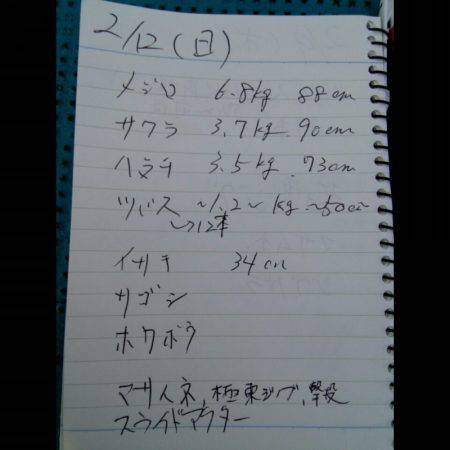 2/12(日)
メジロ 6.8kg 88cm
サワラ 3.7kg 90cm
ハマチ 3.5kg 73cm
ツバス ~1.2~kg ~50cm
~12本
イサキ 34cm
サゴシ
ホウボウ
マサムネ,極東ジグ,撃投
スライドアクター